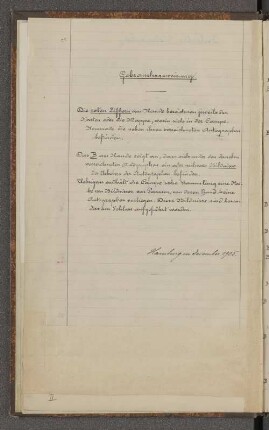 Gebrauchsanweisung
Die roten Ziffern am Rande bezeichnen jeweils den
Kasten oder die Mappe, worin sich in der Campe-
Sammlung die neben ihnen verzeichneten Autographen
befinden.
Das B am Rande zeigt an, dass
verzeichneten Autographen Bildnisse
der Urheber der Autographen befinden.
Uebrigens enthält die Campe'sche Sammlung eine Rei-
he von Bildnissen von Personen, von deren Hand keine
Autographen vorliegen. Diese Bildnisse sind
am Schluss aufgeführt worden.
Hamburg im December 1905.
II